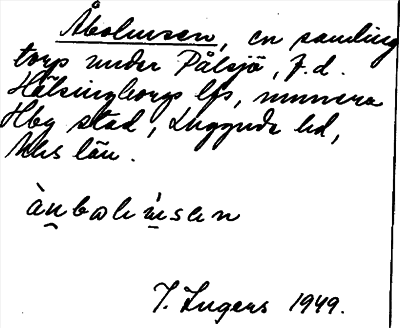 Åbolmsen, en samling
torp under Pålsjö, f.d.
Hälsingborgs lfs, numera
Hbg stad, Luggude hd,
Mhs län.
I. Ingers 1949.